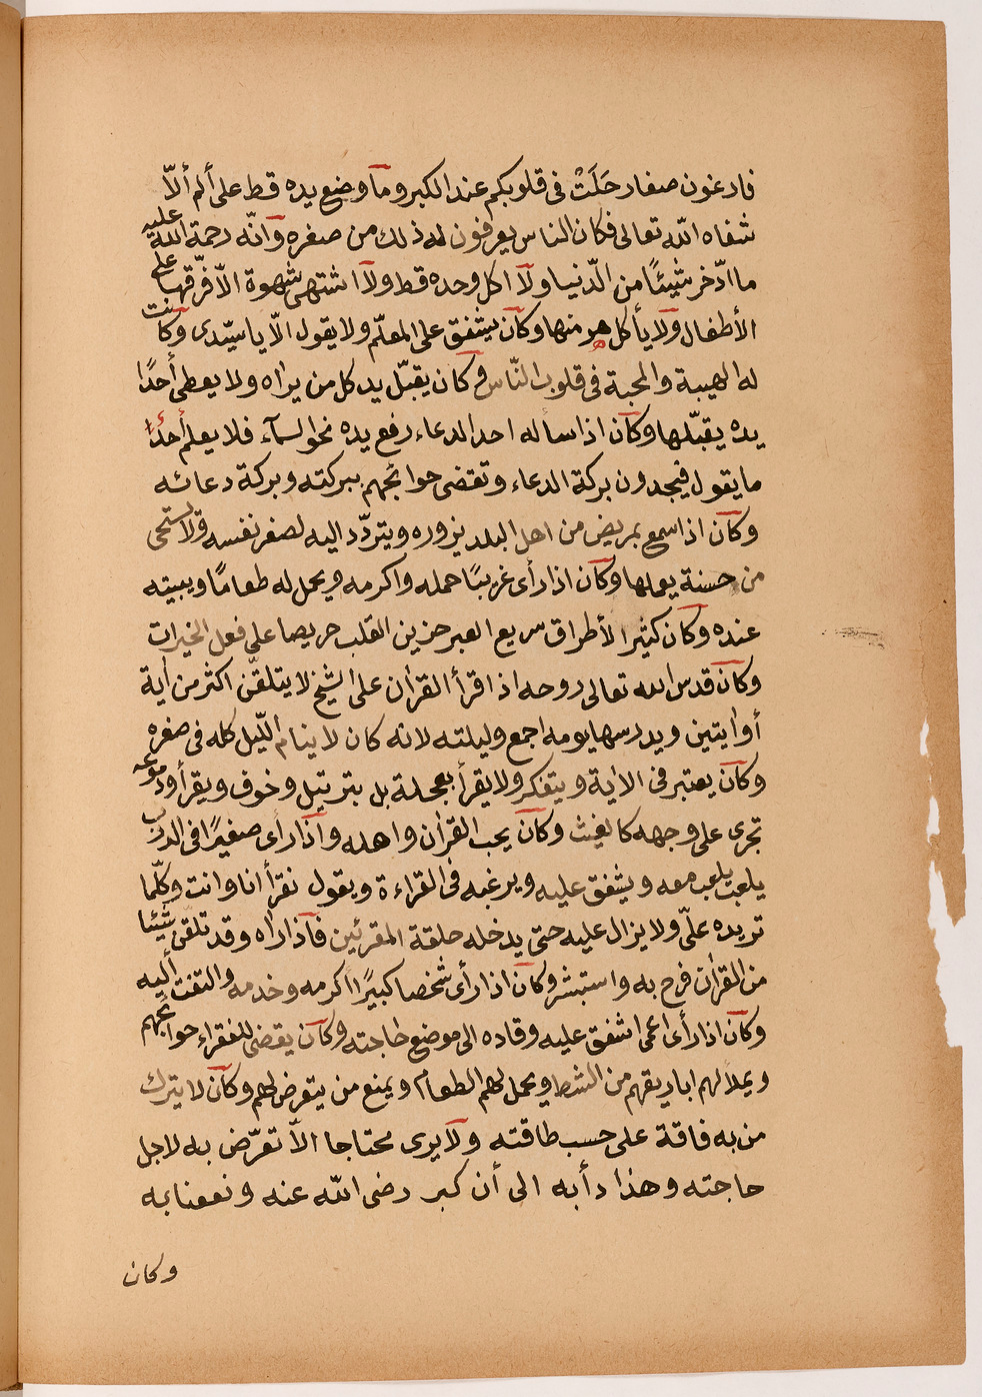 فارغون صغار حَلَتْ فى قلوبكم عند الكبر وما وضع يده قط على ألم ألّا
شفاه الله تعالى فكان الناس يعرفون له ذلك من صغره وانّه رحمة الله عليه
ما ادّخر شيئًا من الدّنيا ولا اكل وحده قط ولا اشتهى شهوة الا فرّقها على
الأطفال ولا يأكل هو منها وكان يشفق على المعلّم ولا يقول الّا يا سيّدى وكانت
له الهيبة والمحبة فى قلوب النّاس وكان يقبّل يد كل من يراه ولا يعطى أحدًا
يده يقبّلها وكان اذا سأله احد الدعاء رفع يده نحو السمآء فلا يعلم أحدٌ
ما يقول فيجدون بركة الدعاء وتقضى حوائجهم ببركته وبركة دعائه
وكان اذا سمع بمريض من اهل البلد يزوره ويتردّد اليه لصغر نفسه ولا يستحى
من حسنة يعملها وكان اذا رأى غريبًا حمله واكرمه ويحمل له طعامًا ويبيته
عنده وكان كثير الأطراق سريع العبر حزين القلب حريصا على فعل الخيرات
وكان قدس الله تعالى روحه اذا قرأ القران على الشيخ لا يتلقّن اكثر من أية
أو أيتين ويدرسها يومه اجمع وليلته لانه كان لا ينام اللّيل كله فى صغره
وكان يعتبر فى الأية ويتفكر ولا يقرأ بعجلة بل بترتيل وخوف ويقرأ ودموعه
تجرى على وجهه كالغيث وكان يحب القرأن واهله واذا رأى صغيرًا فى الدرب
يلعب يلعب معه ويشفق عليه ويرغبه فى القراءة ويقول نقرأ انا وانت وكلّما
تريده علىّ ولا يزال عليه حتى يدخله حلقة المقرئين فاذا رأه وقد تلقّى شيئا
من القرأن فرح به واستبشر وكان اذا رأى شخصا كبيرًا اكرمه وخدمه والتفت أليه
وكان اذا رأى اعمى اشفق عليه وقاده الى موضع حاجته وكان يقضى للفقراء حوائجهم
ويملأ لهم اباريقهم من الشط ويحمل لهم الطعام ويمنع من يتعرض لهم وكان لا يترك
من به فاقة على حسب طاقته ولا يرى محتاجا الاّ تعرّض به لاجل
حاجته وهذا دأبه الى أن كبر رضى الله عنه ونفعنا به
وكان